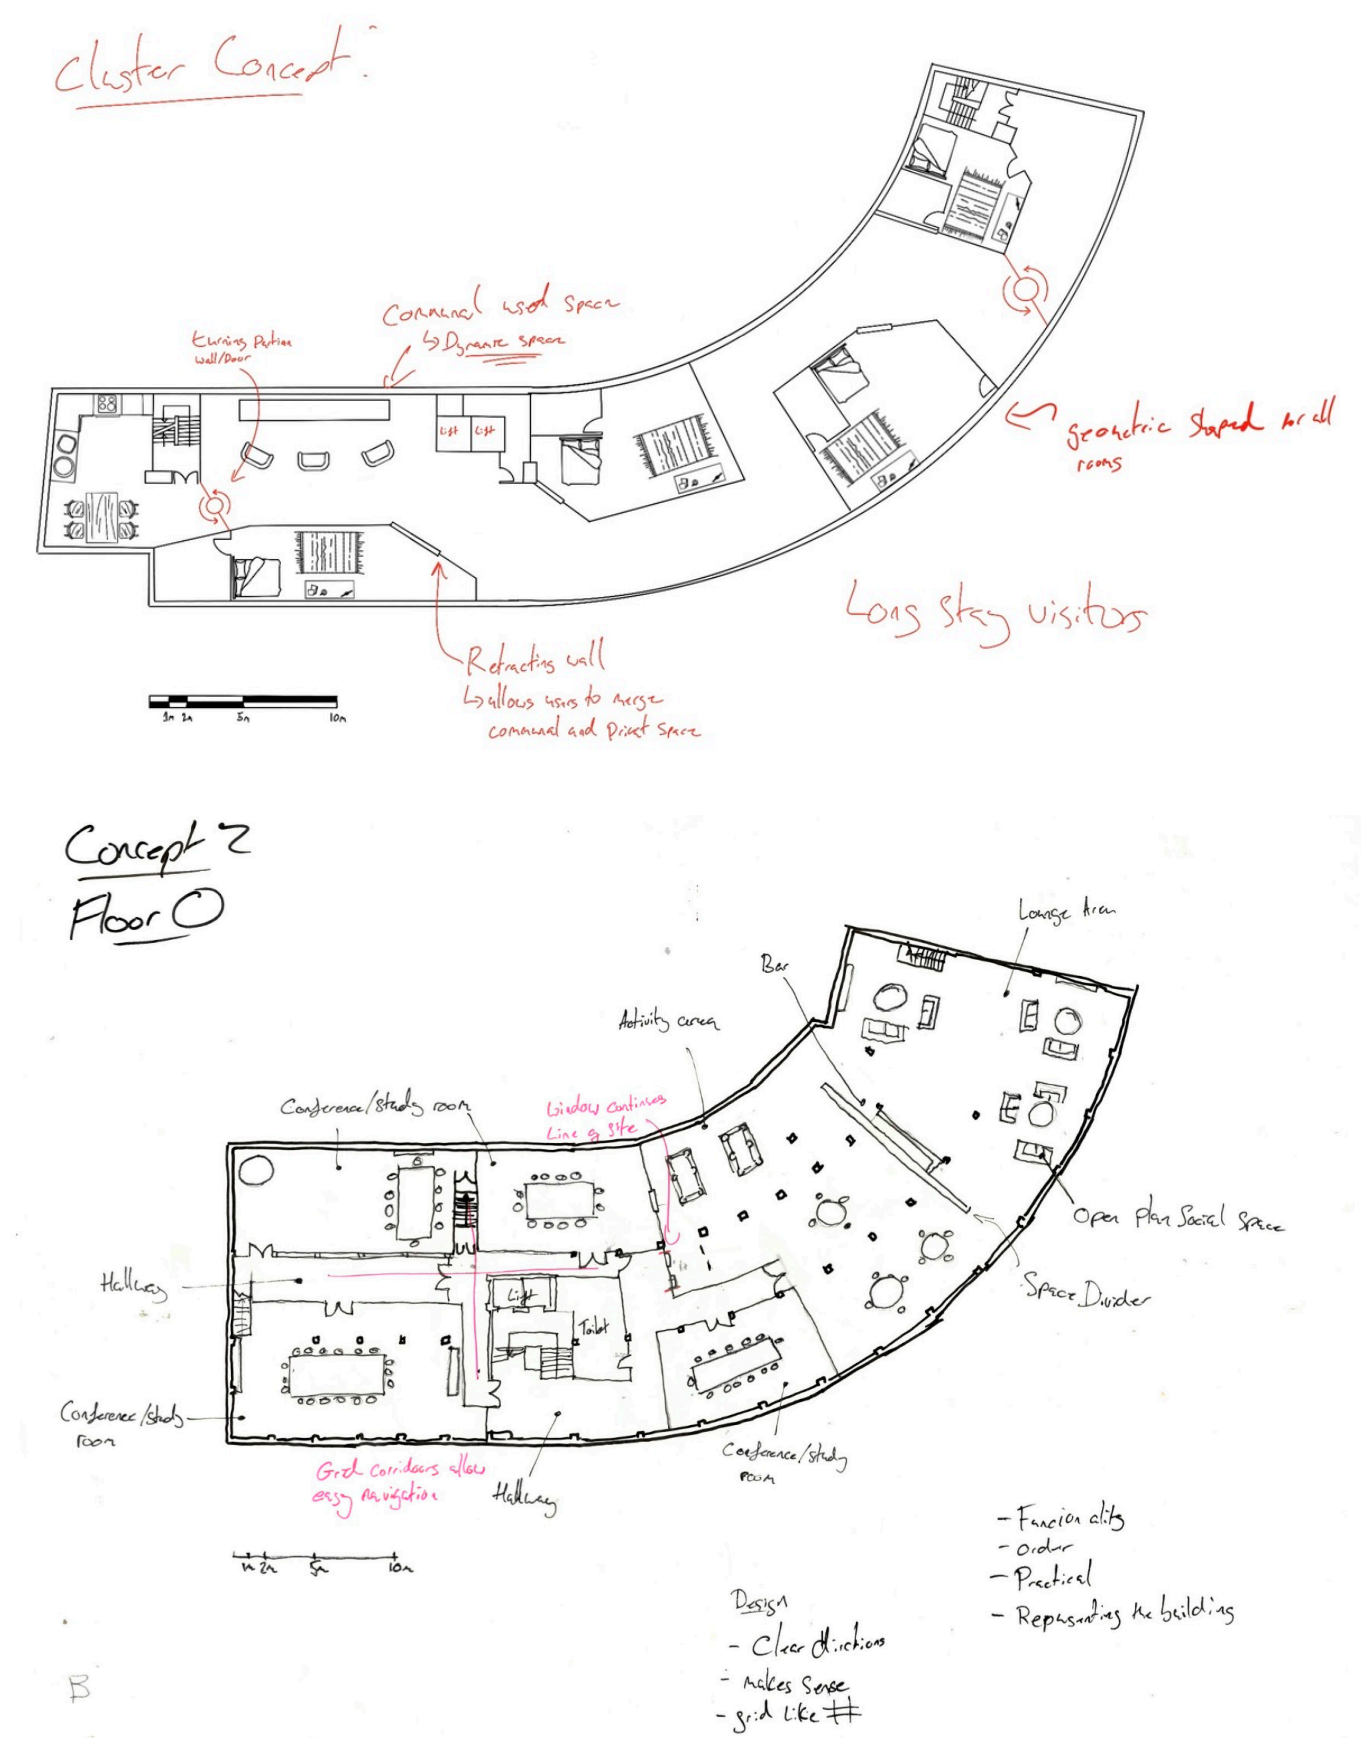 Cluster Concept:
Communal used space
↳ Dynamic space
turning Partion
wall/Door
Lift Lift
geometric shaped for all
rooms
Long stay visitors
Retracting wall
↳ allows users to merge
communal and Privat space
1m 2m 5m 10m
Concept 2
Floor 0
Lounge Area
Bar
Activity area
Conference/study room
Window continues
Line of site
Open Plan Social Space
Hallway
Space Divider
Lift
Toilet
Conference/study
room
Conference/study
room
Grid corridoors allow
easy navigation
Hallway
1m 2m 5m 10m
- Funcionality
- order
- Practical
- Repusenting the building
Design
- Clear dirctions
- makes sense
- grid like #
B